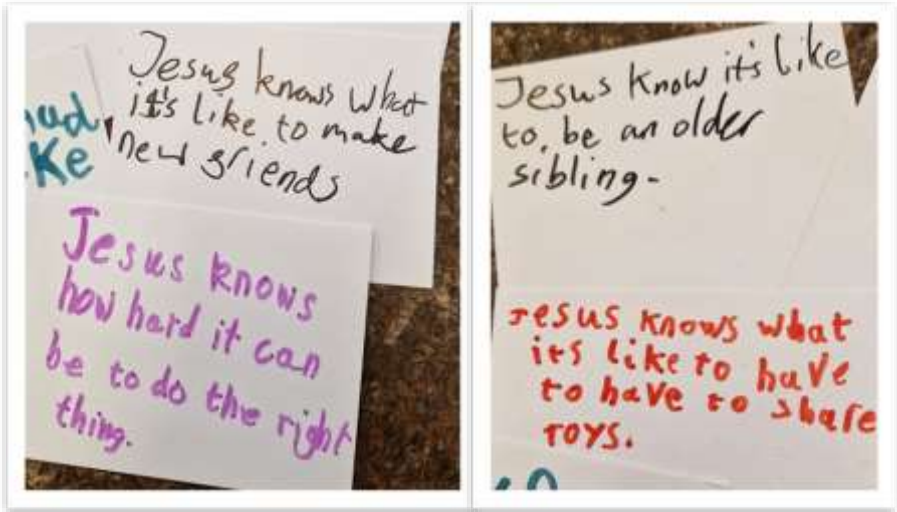 Jesus knows what
it's like to make
new griends
Ke
Jesus knows
how hard it can
be to do the right
thing.
Jesus know it's like
to be an older
sibling.
Jesus knows what
its like to have
to have to share
TOYS.